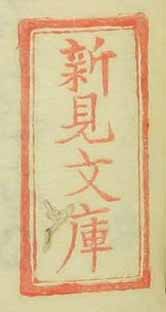 新見文庫